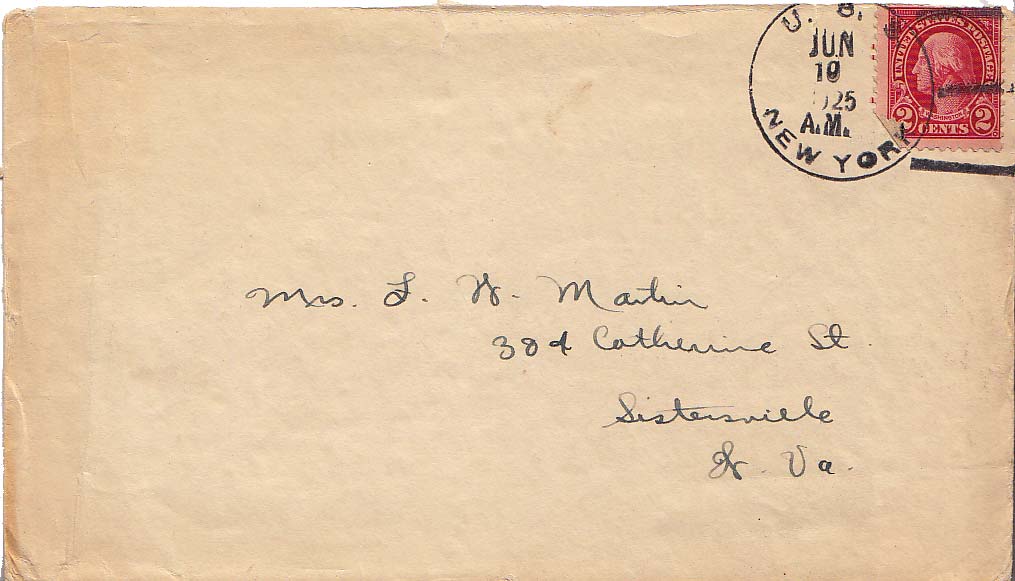 U. S. S.
JUN
19
1925
A.M.
NEW YORK
UNITED STATES POSTAGE
WASHINGTON
2 CENTS 2
Mrs. L. W. Martin
304 Catherine St.
Sistersville
W. Va.